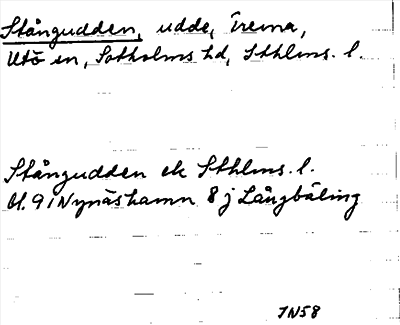 Stångudden, udde, Trema,
Utö sn, Sotholms hd, Sthlms. l.
Stångudden ek Sthlms. l.
bl. 91 Nynäshamn 8 j Långbäling
JN58